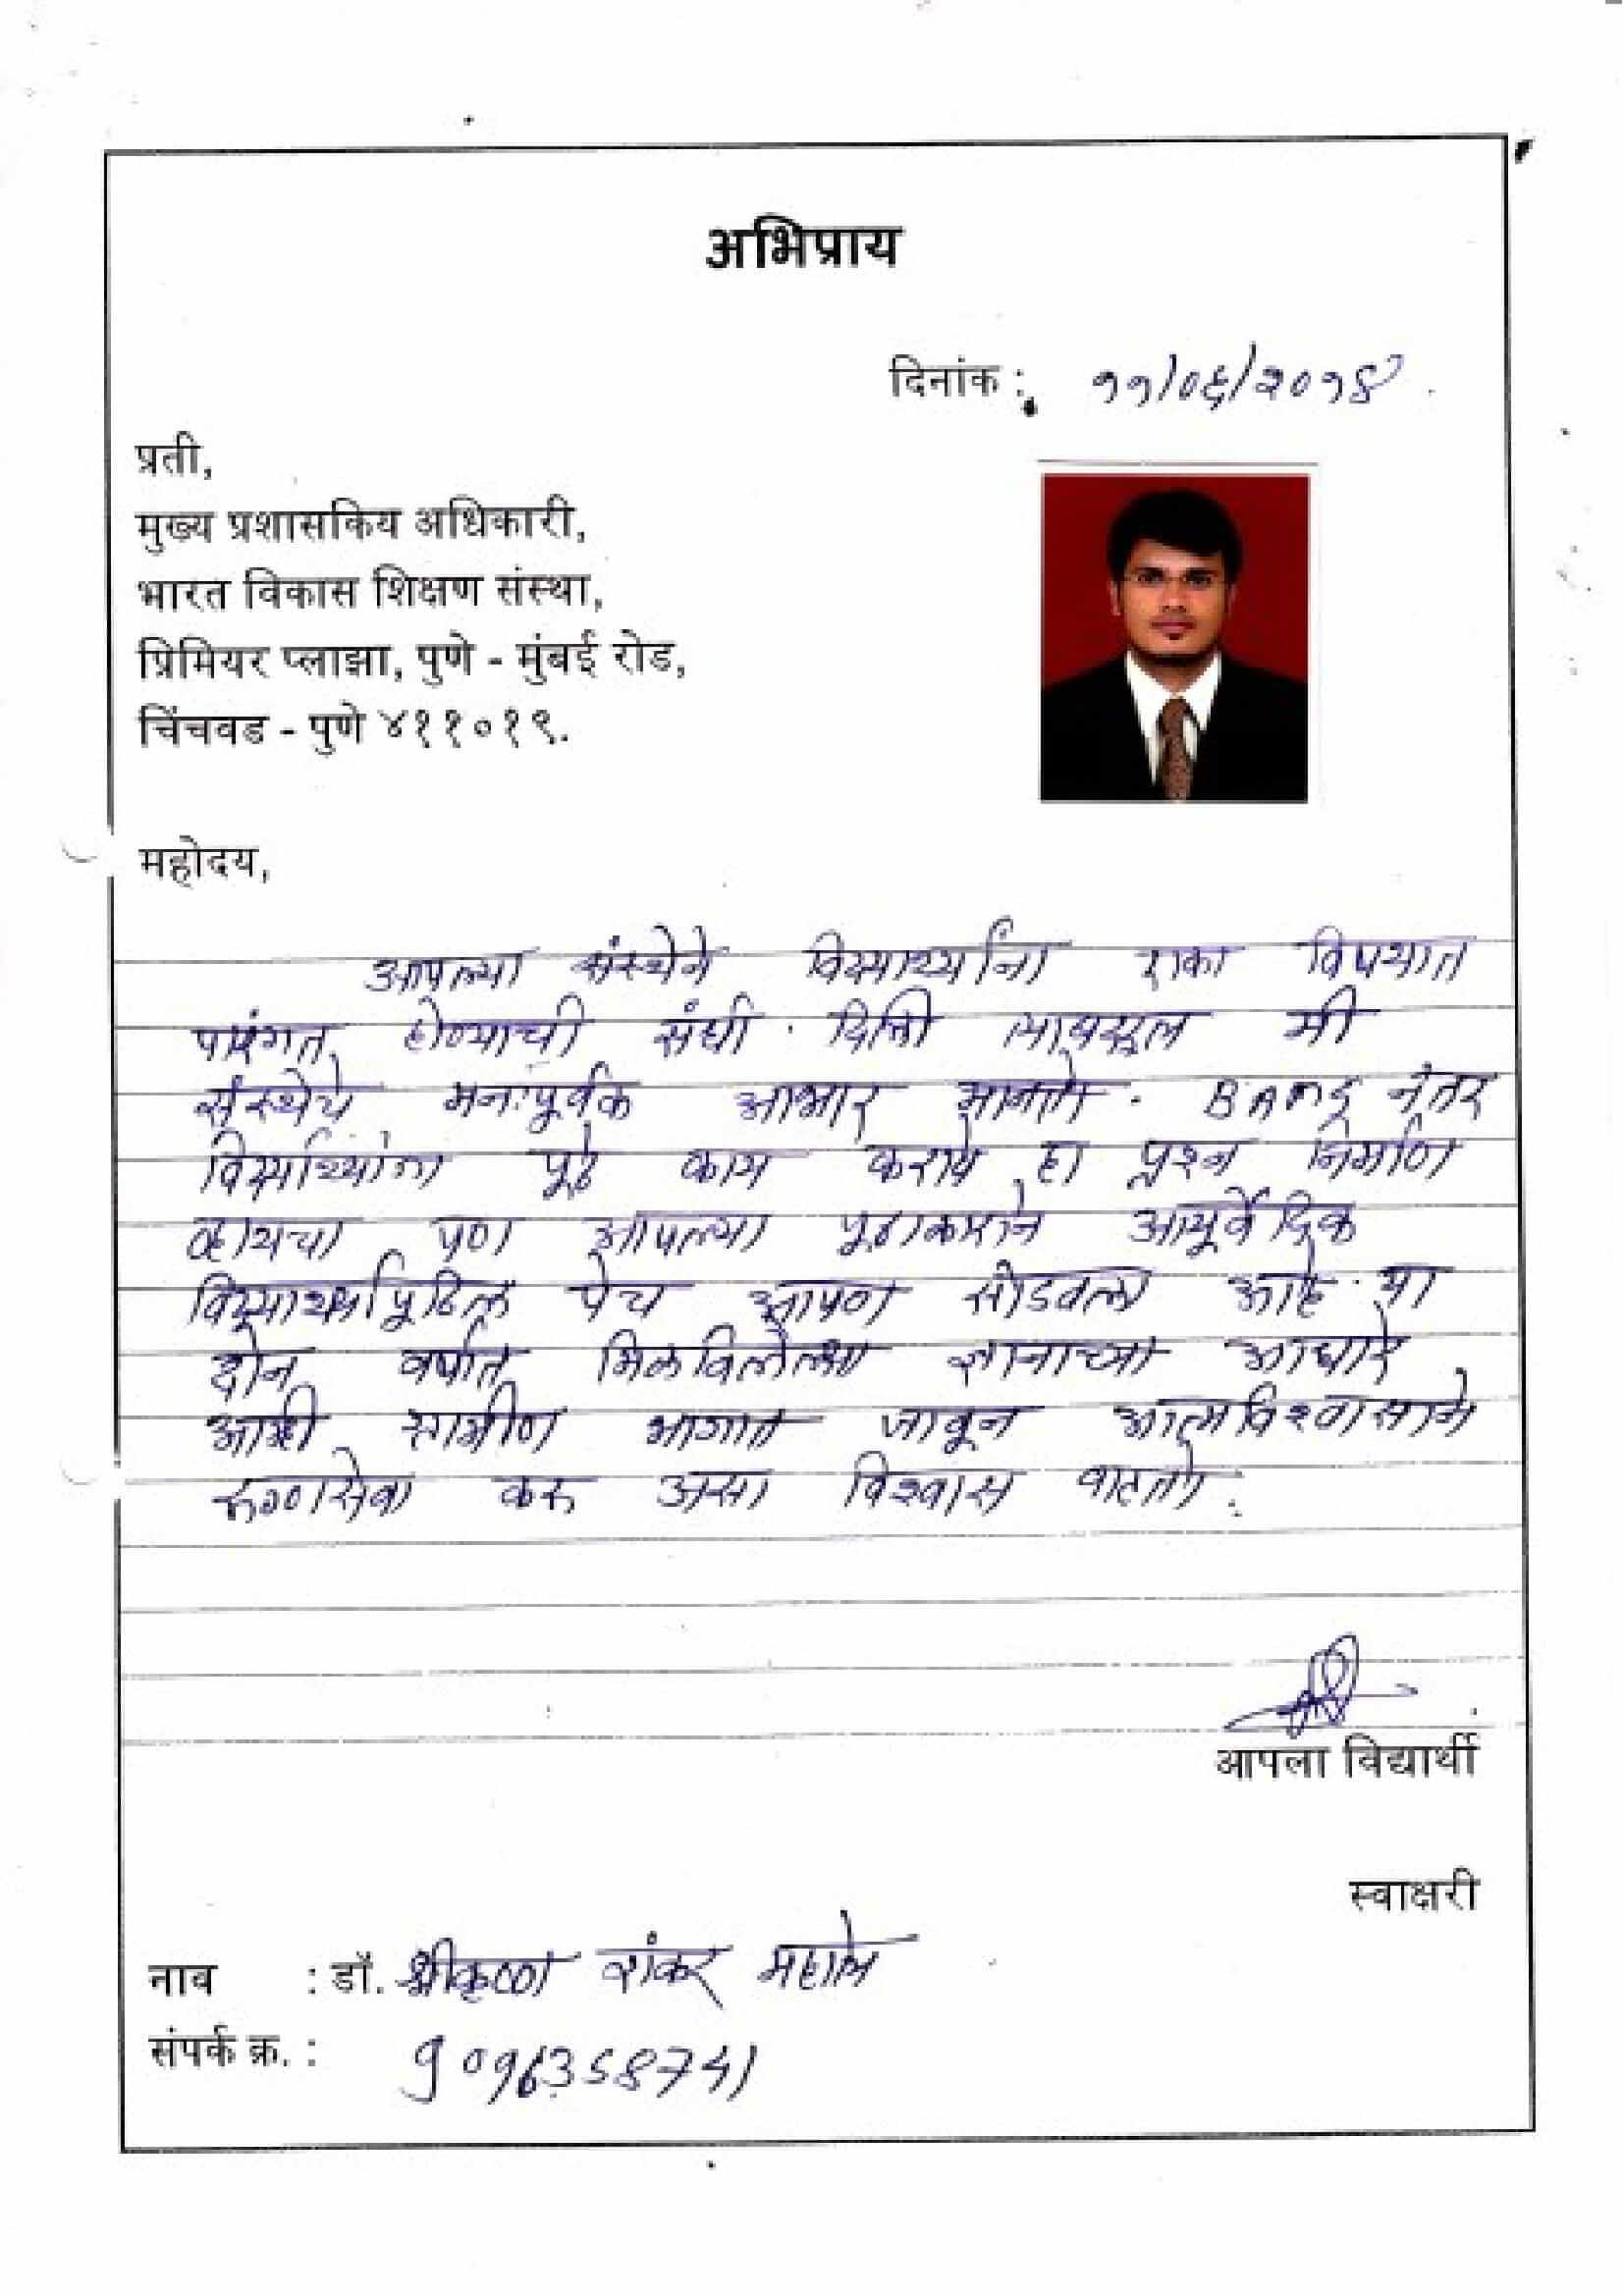 अभिप्राय
दिनांक : ११/०६/२०१४
प्रती,
मुख्य प्रशासकिय अधिकारी,
भारत विकास शिक्षण संस्था,
प्रिमियर प्लाझा, पुणे - मुंबई रोड,
चिंचवड - पुणे ४११०१९.
महोदय,
आपल्या संस्थेने विद्यार्थ्यांना एका विषयात
पारंगत होण्याची संधी दिली त्याबद्दल मी
संस्थेचे मनःपूर्वक आभार मानतो. BAMS नंतर
विद्यार्थ्यांना पूढे काय करावे हा प्रश्न निर्माण
व्हायचा पण आपल्या पूढाकाराने आयूर्वेदिक
विद्यार्थ्यापूढिल पेच आपण सोडवला आहे. या
दोन वर्षात मिळविलेल्या ज्ञानाच्या आधारे
आम्ही ग्रामीण भागात जावून आत्मविश्वासाने
रुग्णसेवा करु असा विश्वास वाटतो.
आपला विद्यार्थी
स्वाक्षरी
नाव : डॉ. श्रीकृष्ण शंकर महाले
संपर्क क्र. : 9096358741